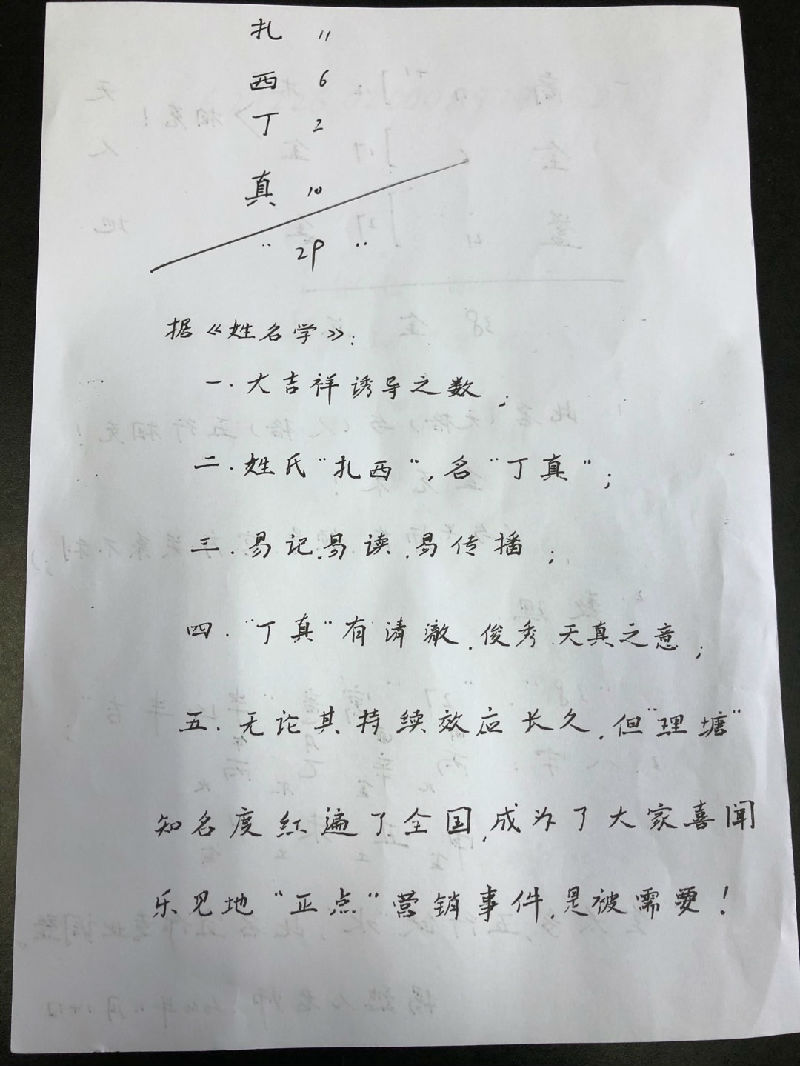 扎 11
西 6
丁 2
真 10
"29"
据《姓名学》:
一.大吉祥诱导之数;
二.姓氏"扎西",名"丁真";
三.易记.易读.易传播;
四."丁真"有清澈.俊秀天真之意;
五.无论其持续效应长久.但"理塘"
知名度红遍了全国,成为了大家喜闻
乐见地"正点"营销事件,是被需要!